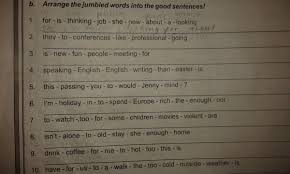 b. Arrange the jumbled words into the good sentences!
1. for - is - thinking - job - she - new - about - a - looking
2. they - to - conferences - like - professional - going
3. is - new - fun - people - meeting - for
4. speaking - English - English - writing - than - easier - is
5. this - passing - you - to - would - Jenny - mind - ?
6. I'm - holiday - in - to - spend - Europe - rich - the - enough - not
7. to - watch - too - for - some - children - movies - violent - are
8. isn't - alone - to - old - stay - she - enough - home
9. drink - coffee - for - me - to - hot - too - this - is
10. have - for - us - to - a - walk - the - too - cold - outside - weather - is